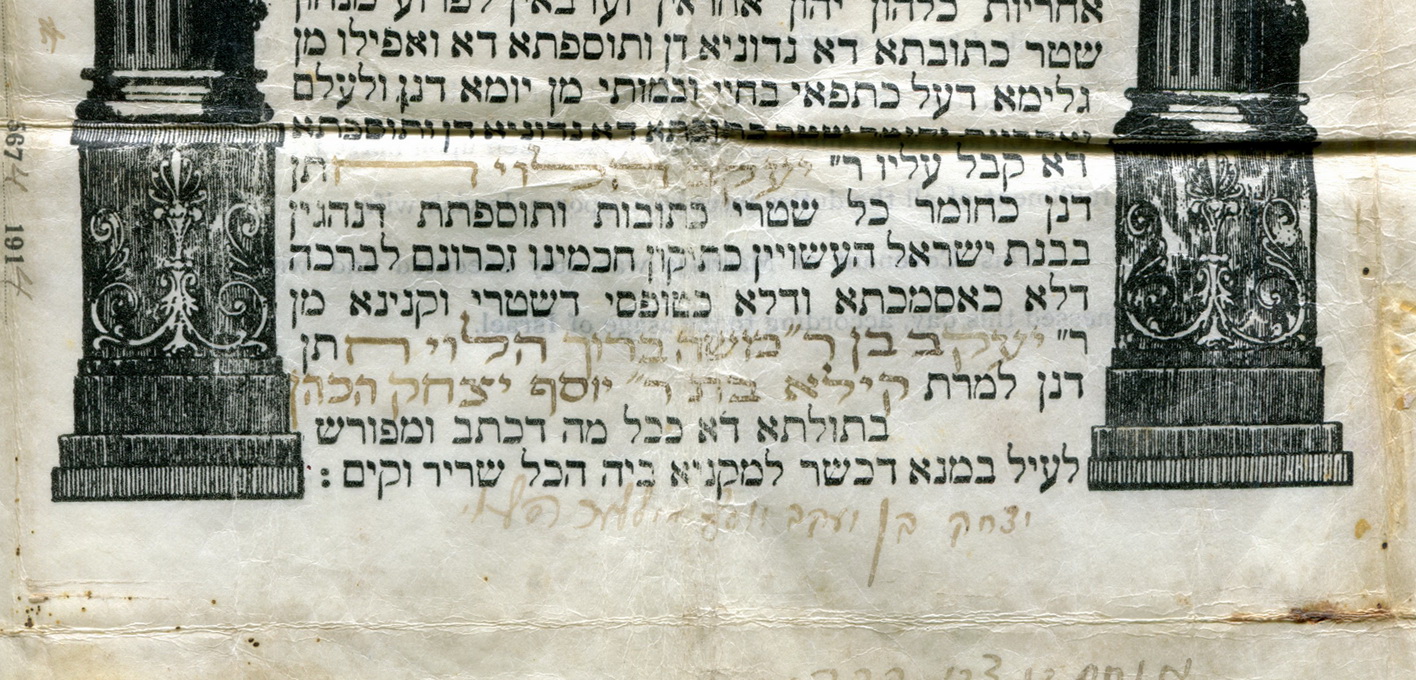 אחריות כלהון יהון אחראין וערבאין לפרוע מנהון
שטר כתובתא דא נדוניא דן ותוספתא דא ואפילו מן
גלימא דעל כתפאי בחיי ובמותי מן יומא דנן ולעלם
ואחריות וחומר שטר כתובתא דא נדוניא דן ותוספתא
דא קבל עליו ר״ יעקב הלוי חתן
דנן כחומר כל שטרי כתובות ותוספתת דנהגין
בבנת ישראל העשויין כתיקון חכמינו זכרונם לברכה
דלא כאסמכתא ודלא כטופסי דשטרי וקנינא מן
ר״ יעקב בן ר״ משה ברוך הלוי חתן
דנן למרת קילא בת ר״ יוסף יצחק הכהן
בתולתא דא ככל מה דכתב ומפורש
לעיל במנא דכשר למקניא ביה הכל שריר וקים :
יצחק בן יעקב
5674 1914
of Israel.